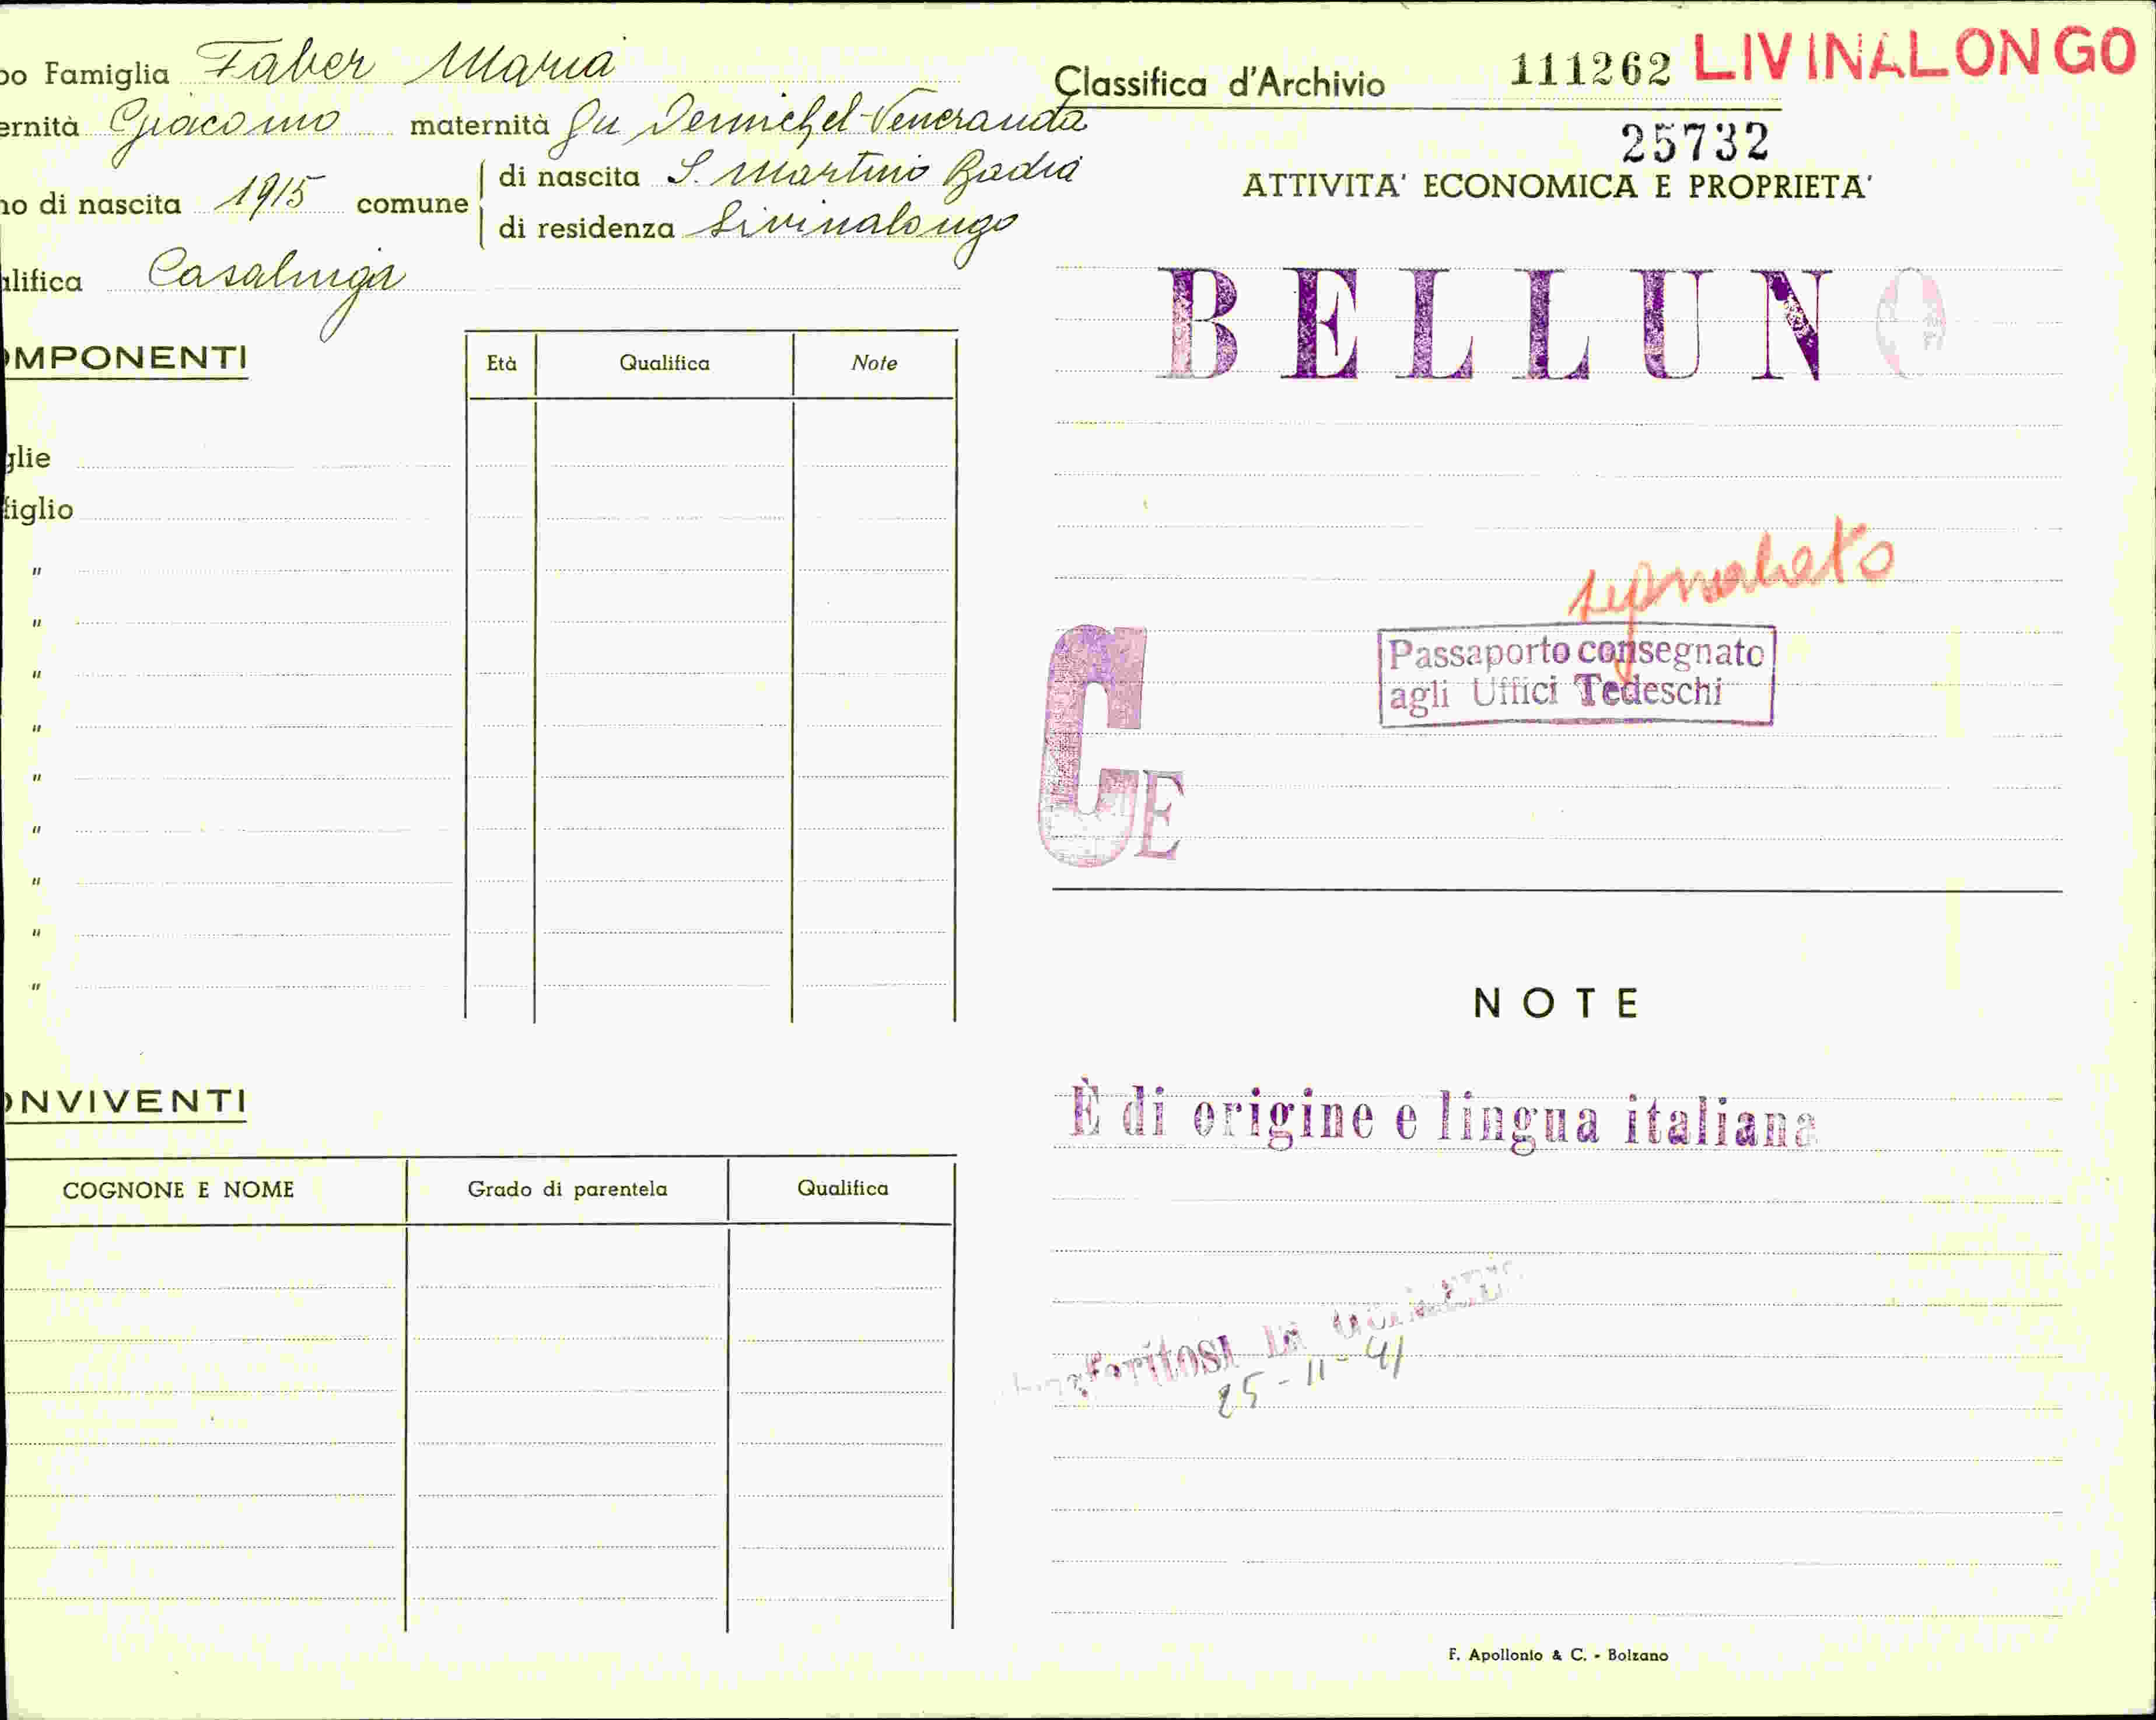 po Famiglia Faber Maria
ernità Giacomo maternità fu Dermichel Veneranda
no di nascita 1915 comune di nascita S. Martino Badia
di residenza Livinalongo
alifica Casalinga
OMPONENTI
Età Qualifica Note
glie
figlio
"
"
"
"
"
"
"
"
"
ONVIVENTI
COGNONE E NOME Grado di parentela Qualifica
Classifica d'Archivio 111262 LIVINALONGO
25732
ATTIVITA' ECONOMICA E PROPRIETA'
BELLUNO
segnalato
Passaporto consegnato
agli Uffici Tedeschi
CE
NOTE
È di origine e lingua italiana
25-11-41
F. Apollonio & C. - Bolzano